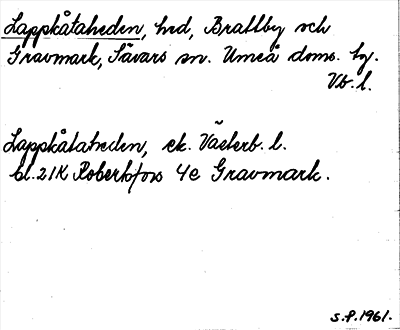 Lappkåtaheden, hed, Brattby och
Gravmark, Sävars sn. Umeå doms. tg.
Vb. l.
Lappkåtaheden, ek. Västerb. l.
bl. 21K Robertsfors 4e Gravmark.
S.P. 1961.